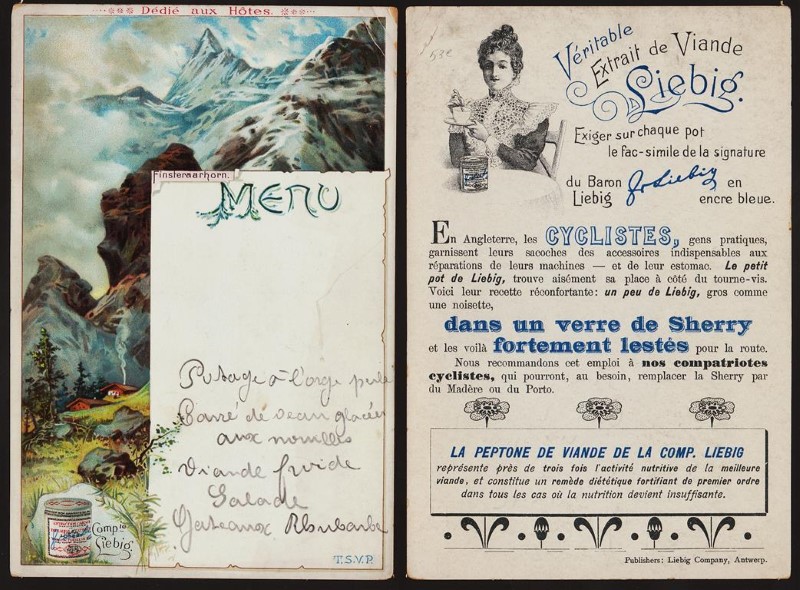 Dédié aux Hôtes.
Finsteraarhorn.
MENU
Potage à l'orge perlé
Carré de veau glacée
aux nouilles
Viande froide
Salade
Gateaux Rhubarbe
Comp.ie
Liebig.
T.S.V.P.
Véritable
Extrait de Viande
Liebig.
Exiger sur chaque pot
le fac-simile de la signature
du Baron
Liebig
JvLiebig
en
encre bleue.
En Angleterre, les CYCLISTES, gens pratiques,
garnissent leurs sacoches des accessoires indispensables aux
réparations de leurs machines — et de leur estomac. Le petit
pot de Liebig, trouve aisément sa place à côté du tourne-vis.
Voici leur recette réconfortante: un peu de Liebig, gros comme
une noisette,
dans un verre de Sherry
et les voilà fortement lestés pour la route.
Nous recommandons cet emploi à nos compatriotes
cyclistes, qui pourront, au besoin, remplacer la Sherry par
du Madère ou du Porto.
LA PEPTONE DE VIANDE DE LA COMP. LIEBIG
représente près de trois fois l'activité nutritive de la meilleure
viande, et constitue un remède diététique fortifiant de premier ordre
dans tous les cas où la nutrition devient insuffisante.
Publishers: Liebig Company, Antwerp.